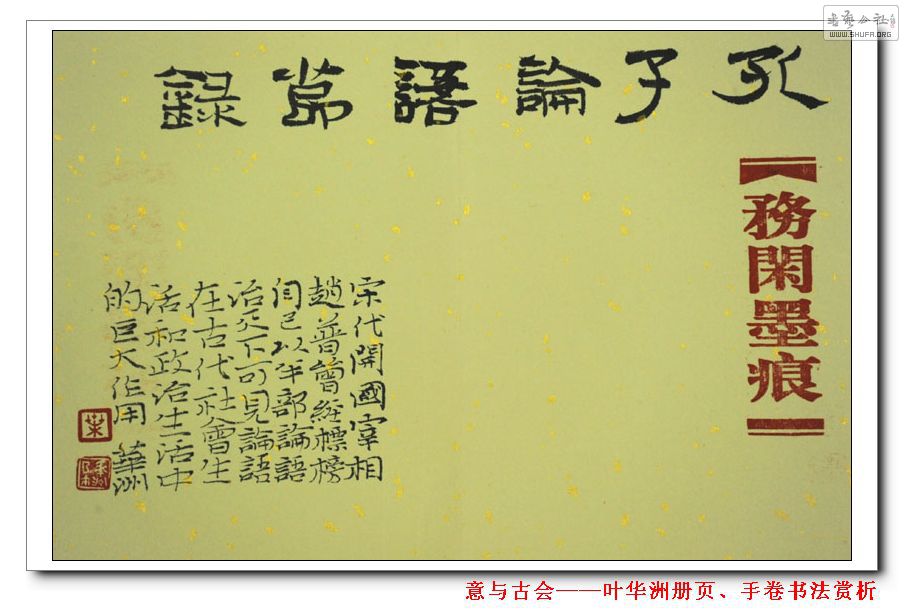 书艺公社
WWW.SHUFA.ORG
孔子論語節錄
務閑墨痕
宋代開國宰相
趙普曾經標榜
自己以半部論語
治天下可見論語
在古代社會生
活和政治生活中
的巨大作用 華洲
葉
意与古会——叶华洲册页、手卷书法赏析